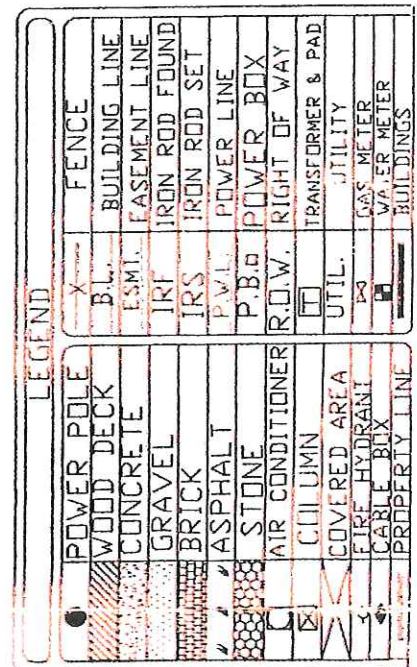 LEGEND
POWER POLE
WOOD DECK
CONCRETE
GRAVEL
BRICK
ASPHALT
STONE
AIR CONDITIONER
COLUMN
COVERED AREA
FIRE HYDRANT
CABLE BOX
PROPERTY LINE
X FENCE
B.L. BUILDING LINE
ESMT. EASEMENT LINE
IRF IRON ROD FOUND
IRS IRON ROD SET
P.W.L. POWER LINE
P.B. POWER BOX
R.O.W. RIGHT OF WAY
T TRANSFORMER & PAD
UTIL. UTILITY
GAS METER
WATER METER
BUILDINGS